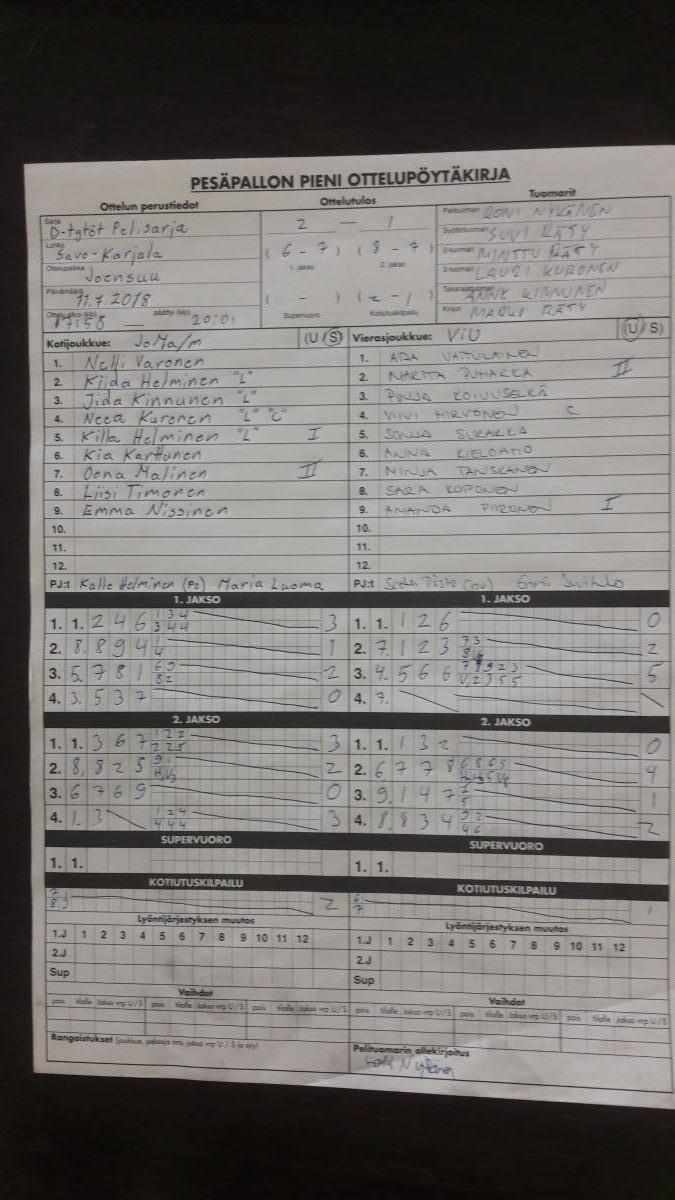 PESÄPALLON PIENI OTTELUPÖYTÄKIRJA
Ottelun perustiedot
Ottelutulos
Tuomarit
Sarja D-tytöt Pelisarja
Lohko Savo-Karjala
Ottelupaikka Joensuu
Päivämäärä 11.7.2018
17:58 — päättyi (klo) 20:01
2 — 1
(6 - 7) (8 - 7)
1. jakso 2. jakso
( - ) (2 - 1)
Supervuoro Kotiutuskilpailu
Pelituomari RONI NYKÄNEN
Syöttötuomari SUVI RÄTY
2-tuomari MINTTU RÄTY
3-tuomari LAURI KURONEN
Takarajatuomari ANNE KINNUNEN
Kirjuri MARKO RÄTY
Kotijoukkue: JoMa/m (U / S)
1. Nelli Varonen
2. Kiida Helminen "L"
3. Jida Kinnunen "L"
4. Neea Kuronen "L" "C"
5. Killa Helminen "L" I
6. Kia Karttunen
7. Oona Malinen II
8. Liisi Timonen
9. Emma Nissinen
10.
11.
12.
PJ:t Kalle Helminen (PJ) Maria Luoma
Vierasjoukkue: ViU (U / S)
1. ADA VÄITULAINEN
2. MARITA PUHAKKA II
3. PINJA KOIVUSELKÄ
4. VIIVI HIRVONEN C
5. SONJA SUKAKKA
6. ANNA KIELOAHO
7. MINJA TANSKANEN
8. SARA KOPONEN
9. AMANDA PIIRONEN I
10.
11.
12.
PJ:t
1. JAKSO
1. 1. 2 4 6 1 3 4 3
3 4 4
2. 8. 8 9 4 1 1
4
3. 5. 7 8 1 6 9 2
8 2
4. 3. 5 3 7 0
2. JAKSO
1. 1. 3 6 7 1 2 2 3
2 2 5
2. 8. 8 2 5 9 1 2
3. 6 7 6 9 0
4. 1. 3 1 2 4 3
4 4 4
SUPERVUORO
1. 1.
KOTIUTUSKILPAILU
2
1. JAKSO
1. 1. 1 2 6 0
2. 7. 1 2 3 7 3 2
3. 4. 5 6 6 5
4. 7.
2. JAKSO
1. 1. 1 3 2 0
2. 6 7 7 8 6 8 6 5 4
3. 9. 1 4 7 2 1
5
4. 8. 8 3 4 9 2 2
4 6
SUPERVUORO
1. 1.
KOTIUTUSKILPAILU
6 1
7
Lyöntijärjestyksen muutos
1.J 1 2 3 4 5 6 7 8 9 10 11 12
2.J
Sup
Vaihdot
pois tilalle Jakso vrp U / S pois tilalle Jakso vrp U / S pois tilalle Jakso vrp U / S
Rangaistukset (joukkue, pelaaja nro, jakso vrp U / S ja syy)
Lyöntijärjestyksen muutos
1.J 1 2 3 4 5 6 7 8 9 10 11 12
2.J
Sup
Vaihdot
pois tilalle Jakso vrp U / S pois tilalle Jakso vrp U / S pois tilalle Jakso vrp U / S
Pelituomarin allekirjoitus
Roni Nykänen